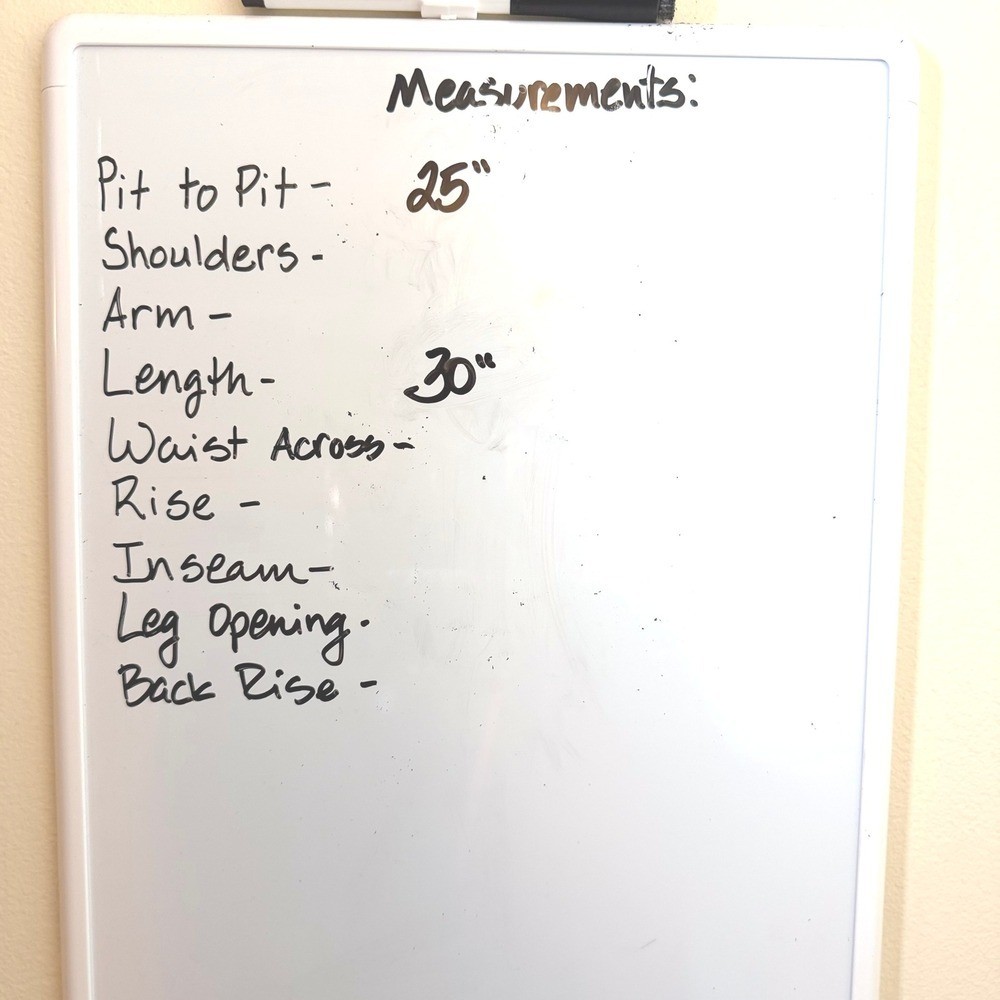 Measurements:
Pit to Pit - 25"
Shoulders -
Arm -
Length - 30"
Waist Across -
Rise -
Inseam -
Leg Opening -
Back Rise -